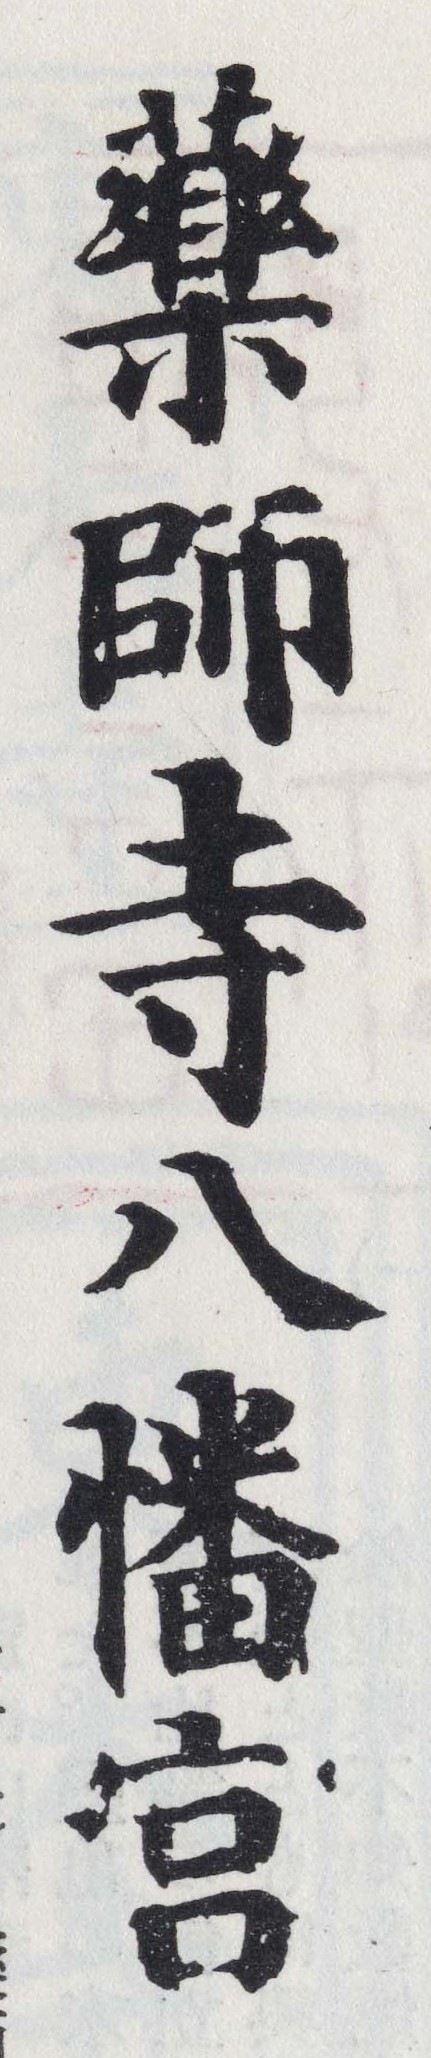 藥師寺八幡宮